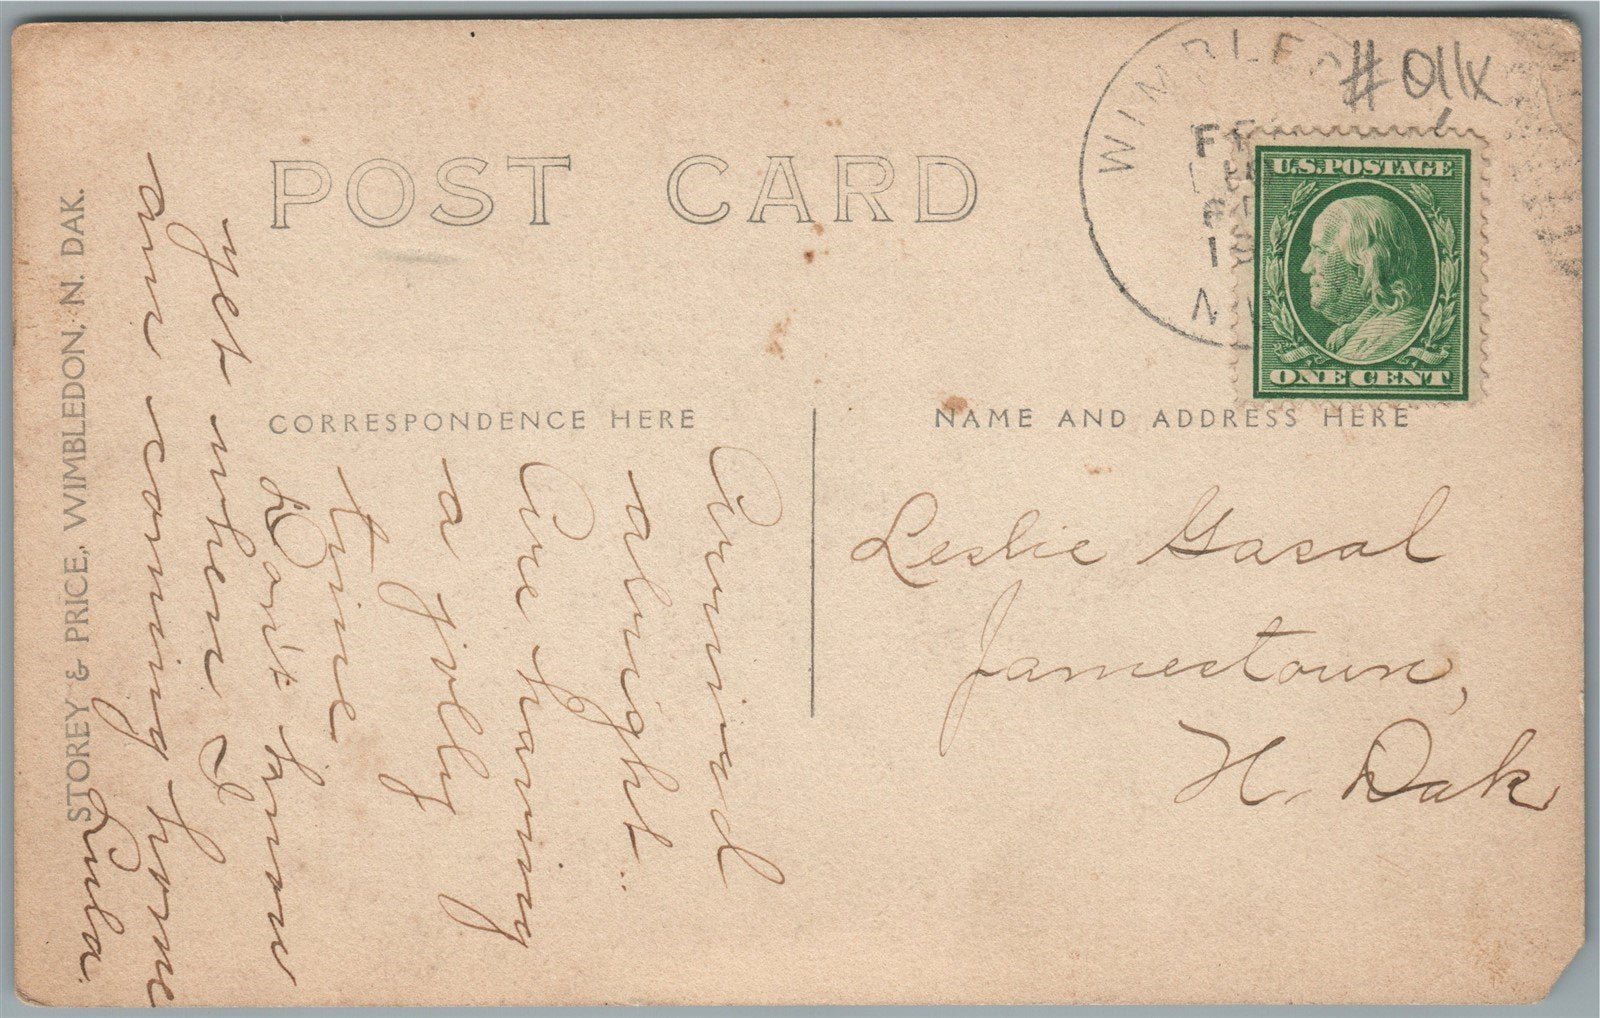 POST CARD
WIMBLED
#011x
U.S.POSTAGE
ONE CENT
CORRESPONDENCE HERE
NAME AND ADDRESS HERE
Arrived
alright.
Are having
a jolly
time
Don't know
yet when I
am coming home
Lula.
Leslie Gasal
Jamestown,
N. Dak
STOREY & PRICE, WIMBLEDON, N. DAK.